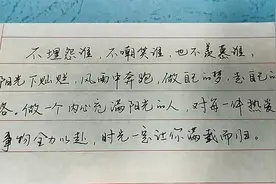 不埋怨谁，不嘲笑谁，也不羡慕谁，
阳光下灿烂，风雨中奔跑，做自己的梦，走自己的
路。做一个内心充满阳光的人，对每一件热爱
事物全力以赴，时光一定让你满载而归。